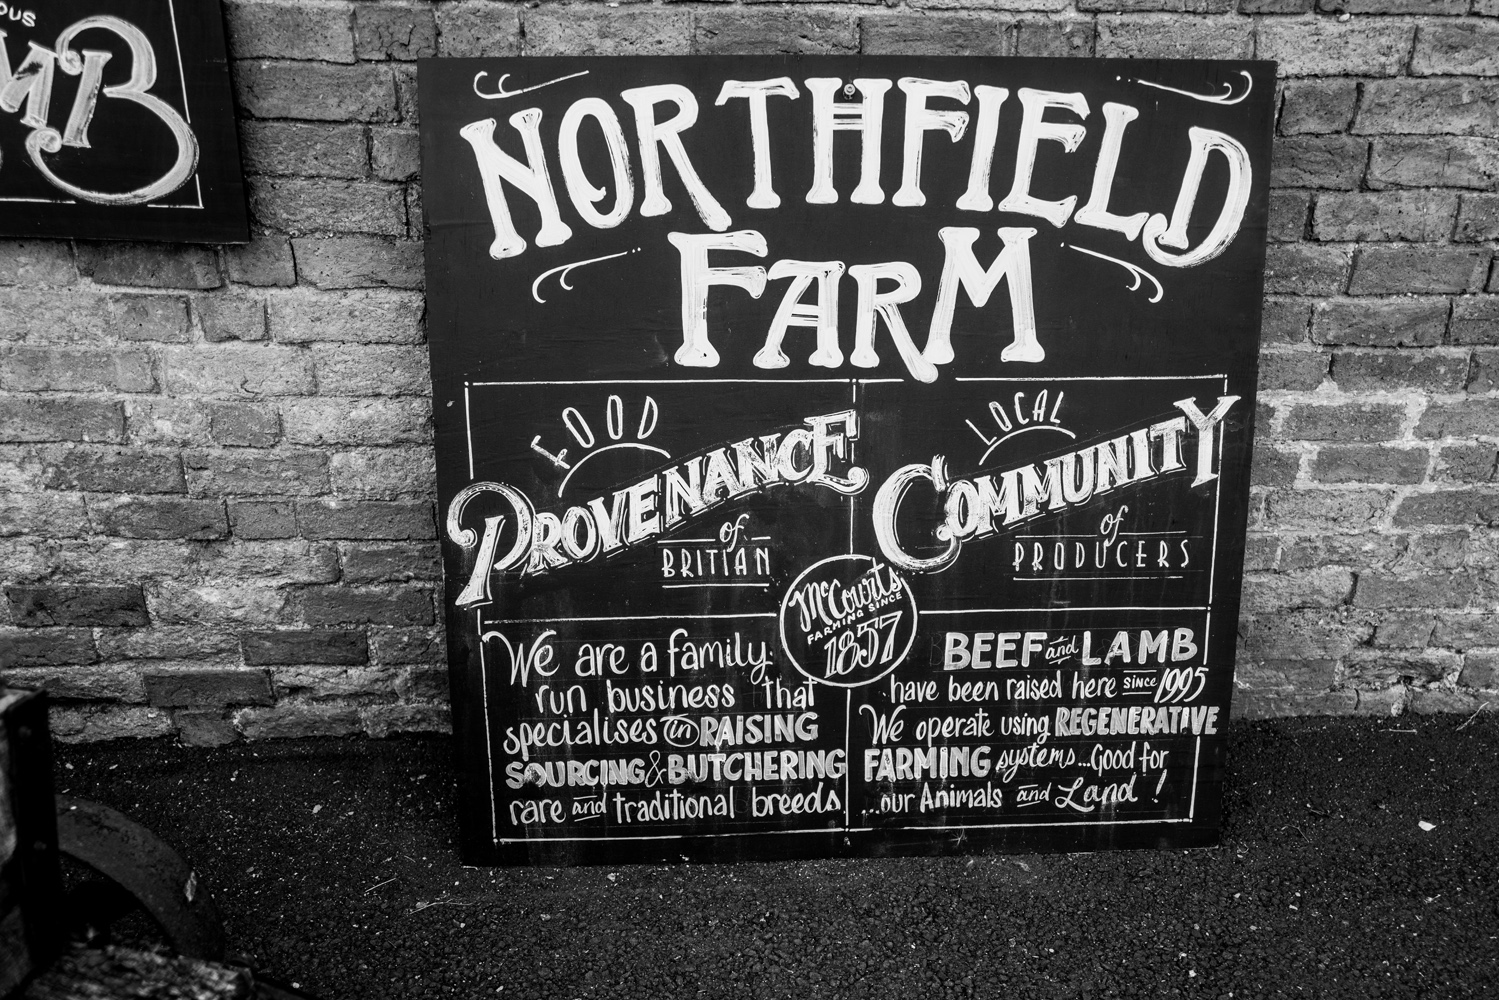 OUS
MB
NORTHFIELD
FARM
FOOD
PROVENANCE
of
BRITIAN
LOCAL
COMMUNITY
of
PRODUCERS
McCourts
FARMING SINCE
1857
We are a family
run business that
specialises in RAISING
SOURCING & BUTCHERING
rare and traditional breeds.
BEEF and LAMB
have been raised here since 1995
We operate using REGENERATIVE
FARMING systems...Good for
...our Animals and Land !